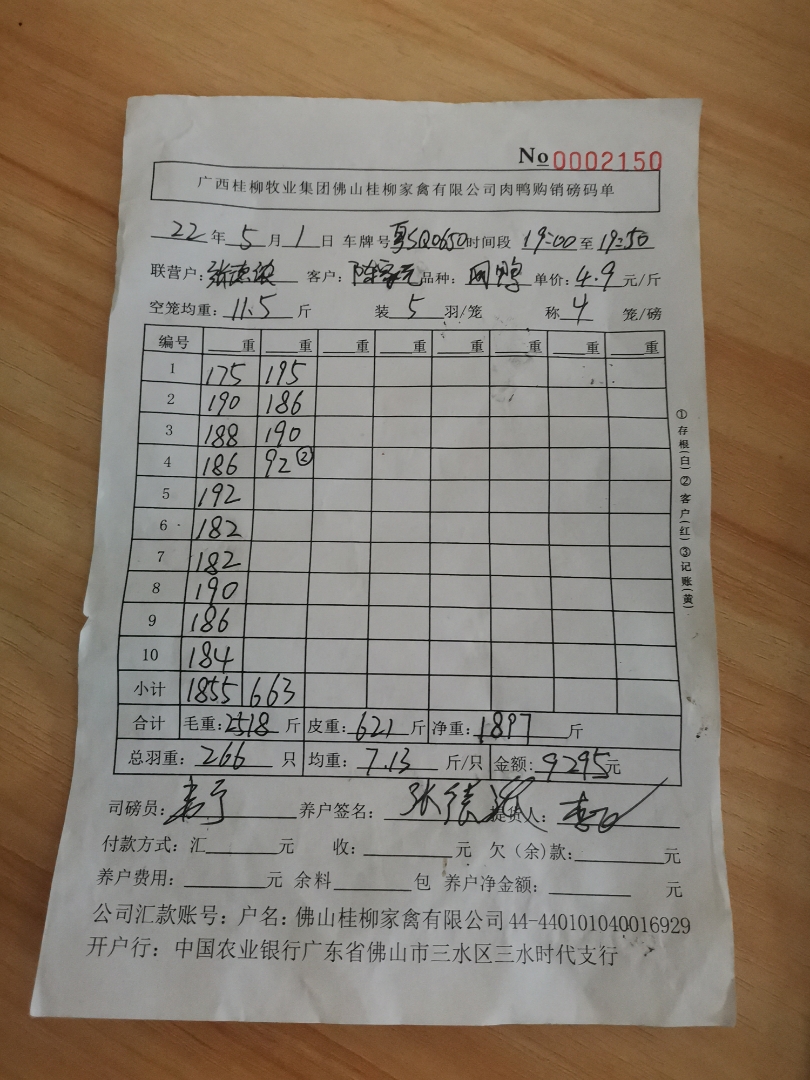 No 0002150
广西桂柳牧业集团佛山桂柳家禽有限公司肉鸭购销磅码单
22年5月1日 车牌号粤SQ0650时间段 19:00至19:50
联营户: 客户: 品种: 鸭 单价:4.9元/斤
空笼均重:11.5斤 装5羽/笼 称4笼/磅
编号 重 重 重 重 重 重 重 重
1 175 195
2 190 186
3 188 190
4 186 92②
5 192
6 182
7 182
8 190
9 186
10 184
小计 1855 663
合计 毛重:2518斤 皮重:621斤 净重:1897斤
总羽重:266只 均重:7.13斤/只 金额:9295元
司磅员: 养户签名:张 提货人:
付款方式:汇 元 收: 元 欠(余)款: 元
养户费用: 元 余料 包 养户净金额: 元
公司汇款账号:户名:佛山桂柳家禽有限公司44-440101040016929
开户行:中国农业银行广东省佛山市三水区三水时代支行
①存根(白)②客户(红)③记账(黄)